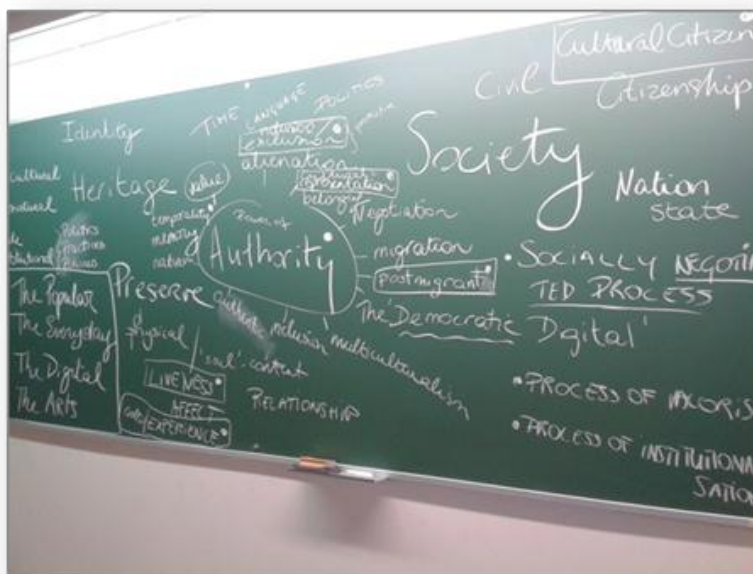 Cultural Citizen
Civil
Citizenship
Identity
TIME
LANGUAGE
POLITICS
inclusion
exclusion
alienation
representation
belonging
Society
Nation
state
cultural
natural
Heritage
value
temporality
memory
nation
Politics
Practices
Places
Authority
Negotiation
migration
postmigrant
The 'Democratic Digital'
• SOCIALLY NEGOTIA
TED PROCESS
The Popular
The Everyday
The Digital
The Arts
Preserve
authentic
inclusion
multiculturalism
physical
'soul'-content
LIVENESS
AFFECT
EXPERIENCE
RELATIONSHIP
• PROCESS OF
• PROCESS OF INSTITUTIONA
SATIO